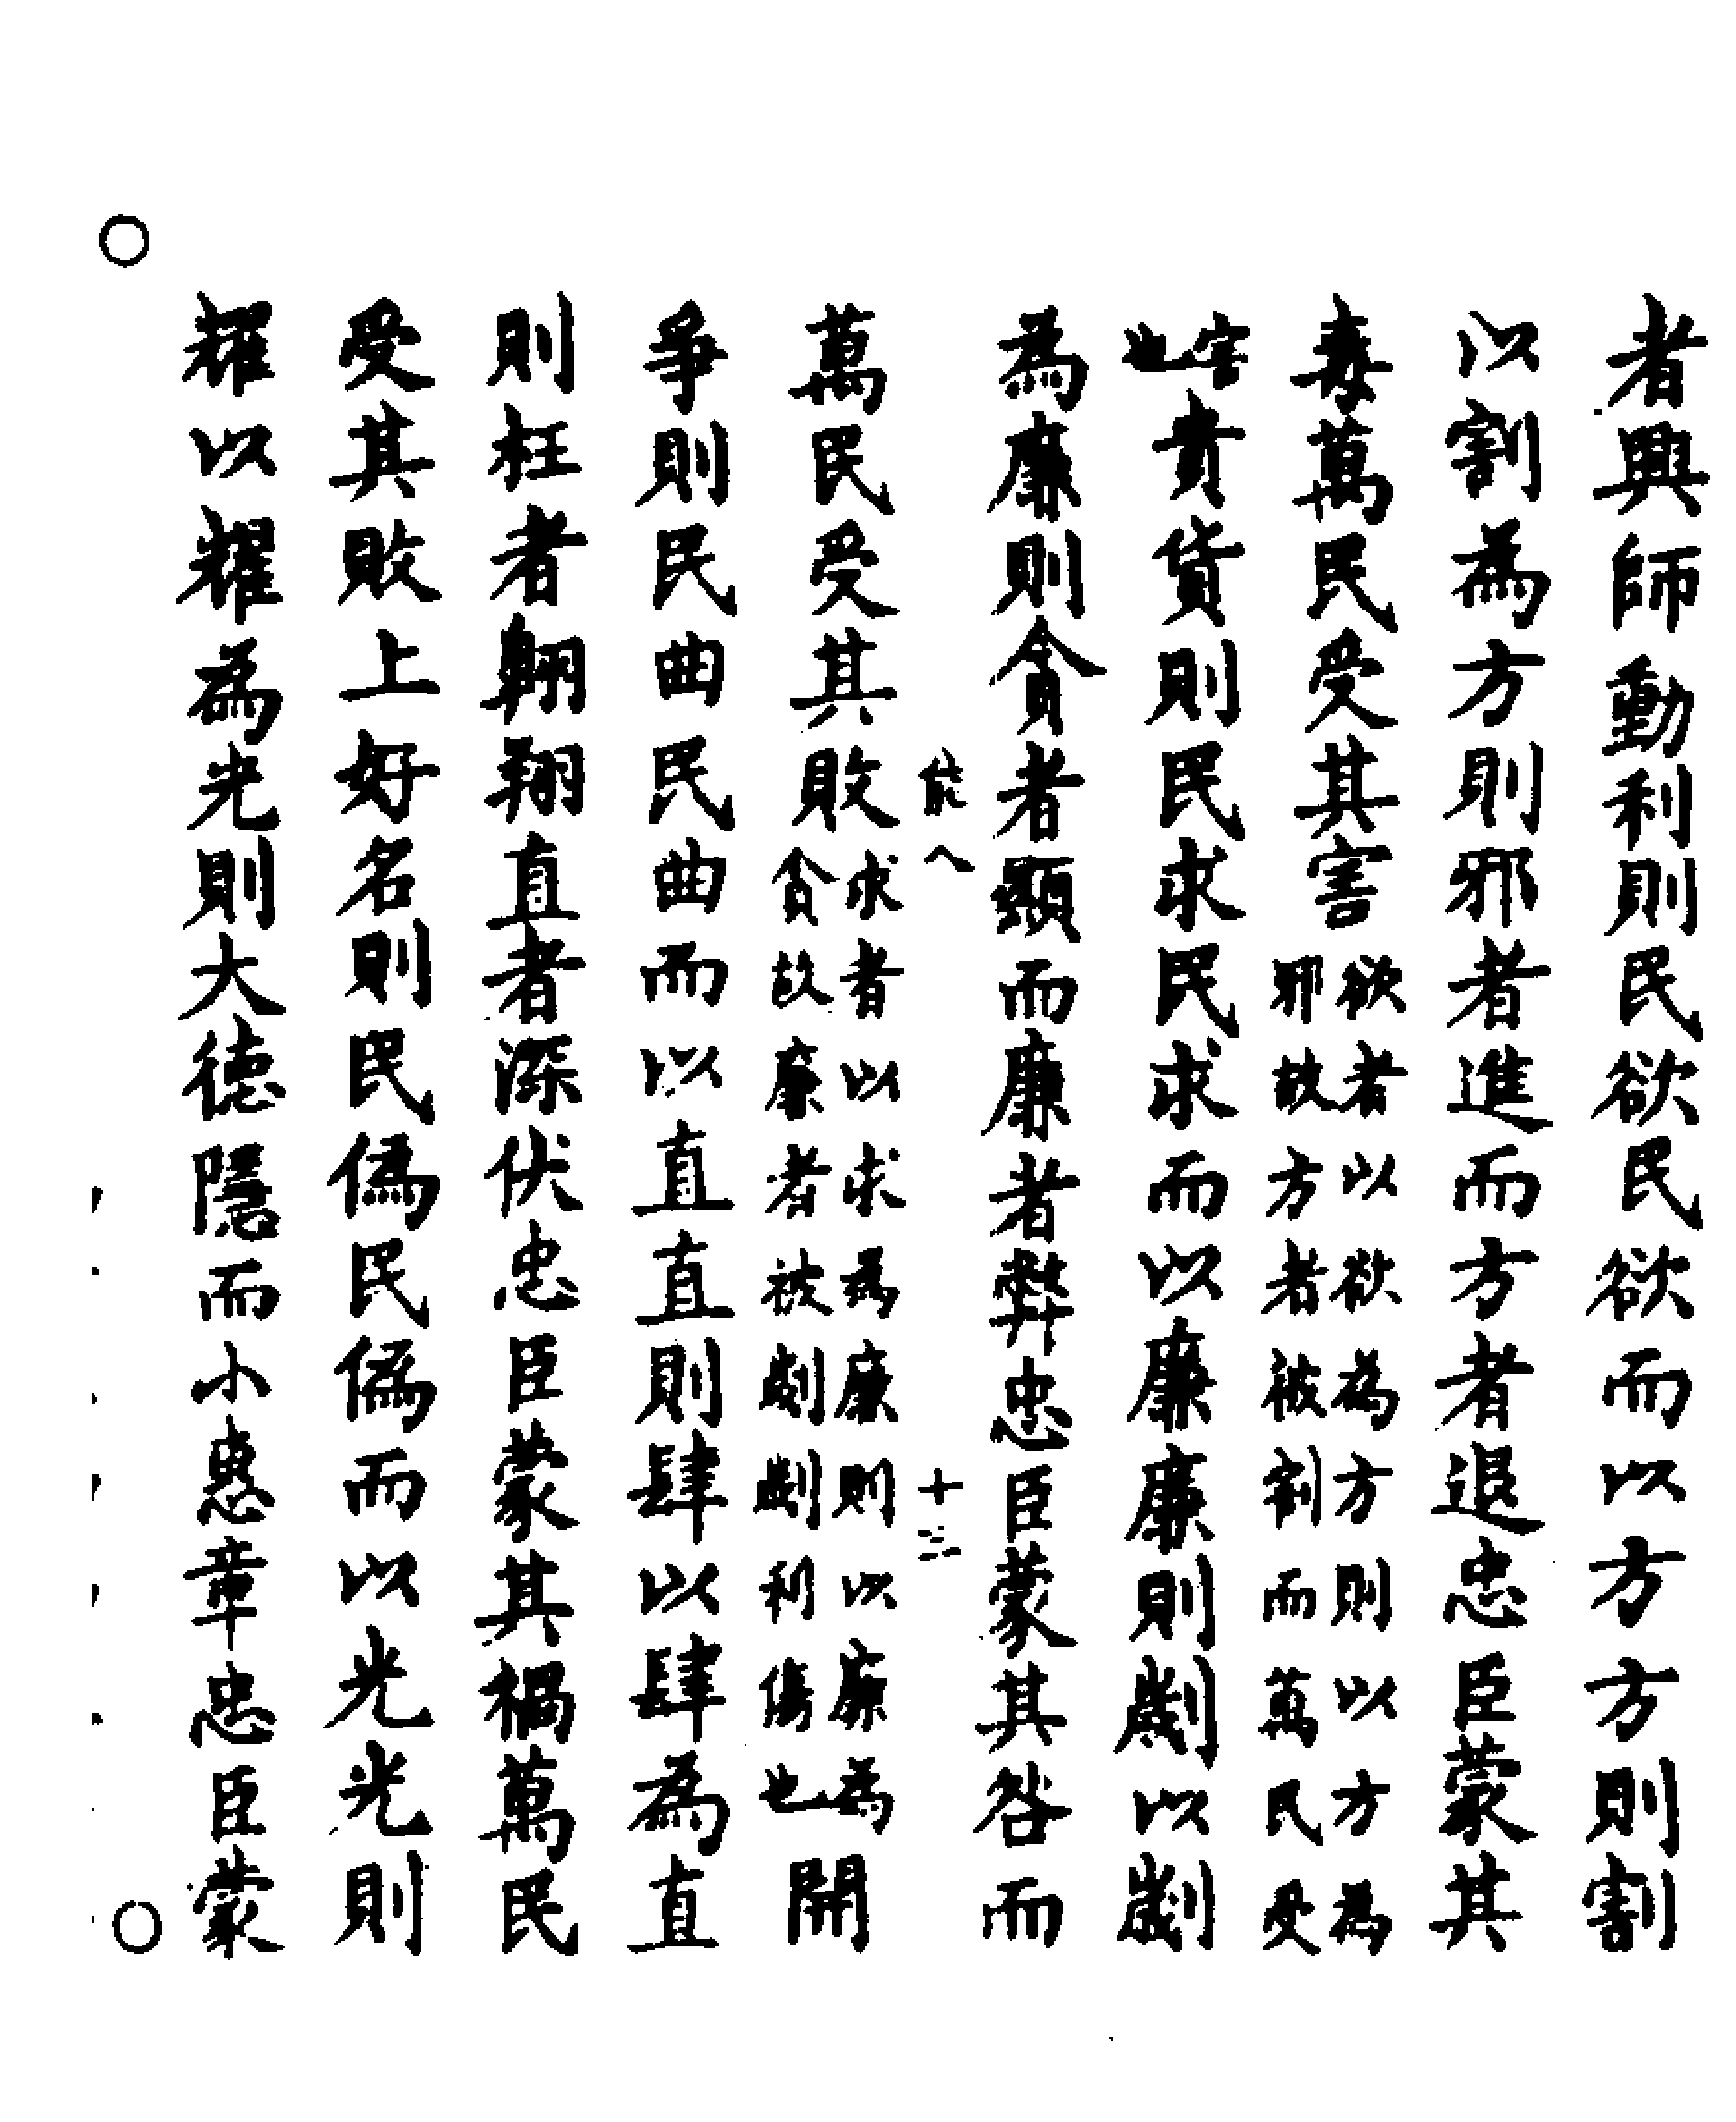 者興師動利則民欲民欲而以方方則割
以割為方則邪者進而方者退忠臣蒙其
毒萬民受其害欲者以欲為方則以方為
邪故方者被割而萬民受
害
也貴貨則民求民求而以廉廉則劌以劌
為廉則貪者顯而廉者弊忠臣蒙其咎而
能八 十三
萬民受其敗求者以求為廉則以廉為
貪故廉者被劌劌利傷也開
爭則民曲民曲而以直直則肆以肆為直
則枉者翱翔直者深伏忠臣蒙其禍萬民
受其敗上好名則民偽民偽而以光光則
耀以耀為光則大德隱而小惠章忠臣蒙